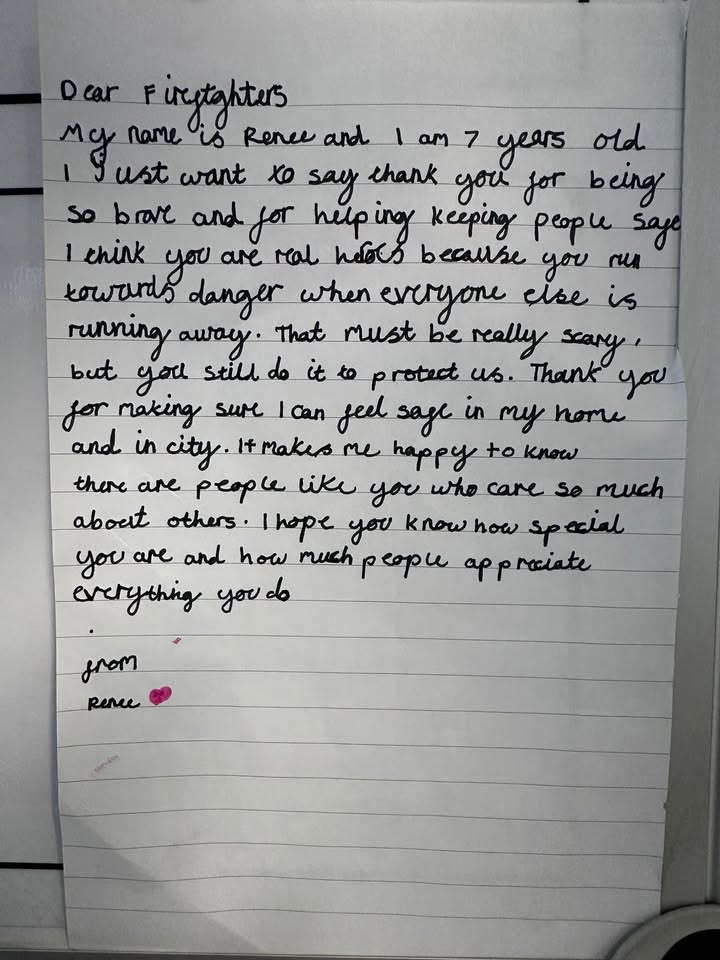 Dear Firefighters
My name is Renee and I am 7 years old
I Just want to say thank you for being
so brave and for helping keeping people safe
I think you are real heroes because you run
towards danger when everyone else is
running away. That must be really scary,
but you still do it to protect us. Thank you
for making sure I can feel safe in my home
and in city. It makes me happy to know
there are people like you who care so much
about others. I hope you know how special
you are and how much people appreciate
everything you do
.
from
Renee